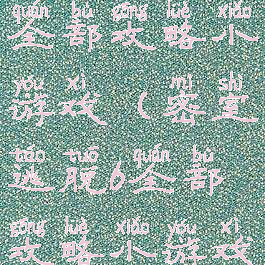 quán bù gōng luè xiǎo
全部攻略小
yóu xì mì shì
游戏(密室
táo tuō quán bù
逃脱6全部
gōng luè xiǎo yóu xì
攻略小游戏